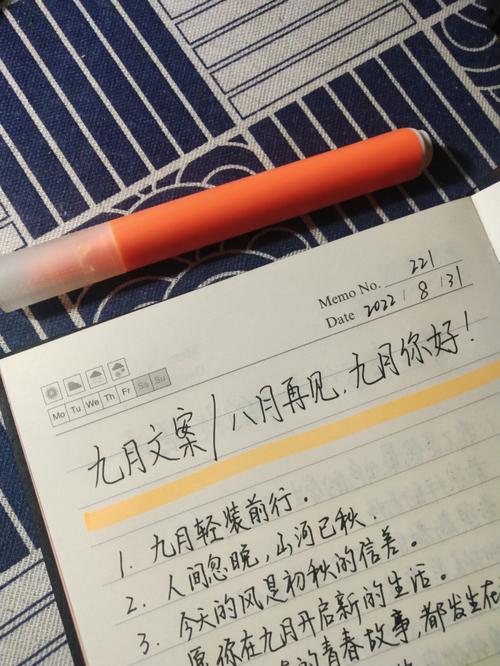 Memo No. 221
Date 2022 / 8 / 31
Mo Tu We Th Fr Sa Su
九月文案/八月再见,九月你好!
1. 九月轻装前行.
2. 人间忽晚,山河已秋.
3. 今天的风是初秋的信差。
愿你在九月开启新的生活。
的青春故事,都发生在